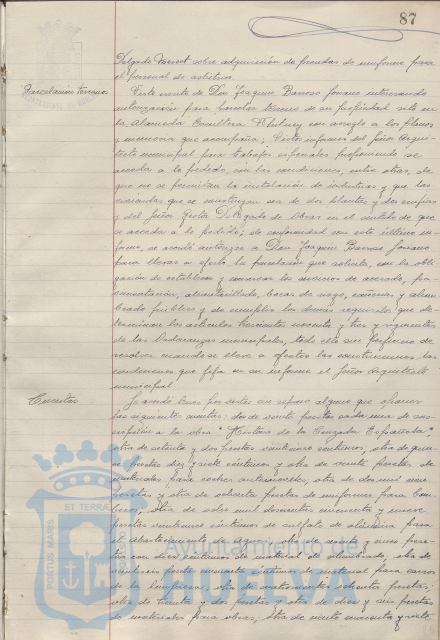 87
Delgado Merect sobre adquisición de prendas de uniforme para
el personal de arbitrios.
Parcelación terrenos
Visto escrito de Don Joaquin Barroso Jonano interesando
autorización para parcelar terrenos de su propiedad sito en
la Alameda Sundheim con arreglo a los planos
y memoria que acompaña; Vistos informes del Señor Arqui-
tecto municipal para trabajos especiales proponiendo se
acceda a lo pedido, con las condiciones, entre otras, de
que no se permitan la instalación de industrias y que las
viviendas que se construyan sean de dos plantas y
y del Señor Gestor Delegado de Obras en el sentido de que
se acceda a lo pedido; de conformidad con este último in-
forme, se acordó autorizar a Don Joaquin Barroso
para llevar a efecto la parcelación que solicita, con la obli-
gación de establecer y conservar los servicios de acerado, pa-
vimentación, alcantarillado, bocas de riego, cañerias y alum-
brado público y de cumplir los demás requisitos que de-
terminan los articulos trescientos noventa y tres y siguientes
de las Ordenanzas municipales, todo ello sin perjuicio de
resolver cuando se lleve a efecto las construcciones las
condiciones que fija en su informe el Señor Arquitecto
municipal.
Cuentas
Se acordó por no ser reparo alguno que ofrecer
las siguientes cuentas: dos de veinte pesetas cada una de sus-
cripción a la obra "Historia de la Cruzada Española",
otra de ochenta y dos pesetas veintinueve centimos, otra de quin-
ce pesetas diez y siete centimos y otra de veinte pesetas de
materiales para coches automoviles, otra de dos mil
pesetas y otra de ochenta pesetas de uniformes para bom-
beros, otra de ocho mil doscientas cincuenta y nueve
pesetas veintinueve centimos de sulfato de alumina para
el abastecimiento de agua, otra de
tas con diez centimos de material de alumbrado, otra de
centimos de material para carros
de la limpieza, otra de cuatrocientas ochenta pesetas,
otra de treinta y dos pesetas y otra de diez y seis pesetas
de materiales para obras, otra de ciento cincuenta y ocho
PORTUS MARIS
ET TERRA
Ayuntamiento de
HUELVA